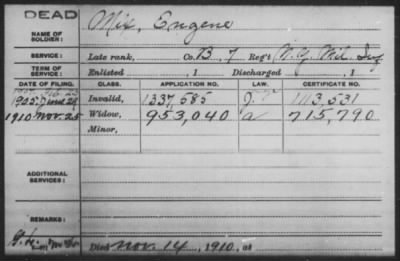 DEAD
Mix, Eugene
NAME OF SOLDIER:
SERVICE: Late rank, Co. B, 7 Reg't N.Y. Mil. Inf.
TERM OF SERVICE: Enlisted , 1 Discharged , 1
DATE OF FILING. CLASS. APPLICATION NO. LAW. CERTIFICATE NO.
1905 Feb. 23
1905 June 29 Invalid, 1337,585 1113,531
1910 Nov. 25 Widow, 953,040 a 715,790
Minor,
ADDITIONAL SERVICES:
REMARKS:
Died Nov. 14, 1910, at